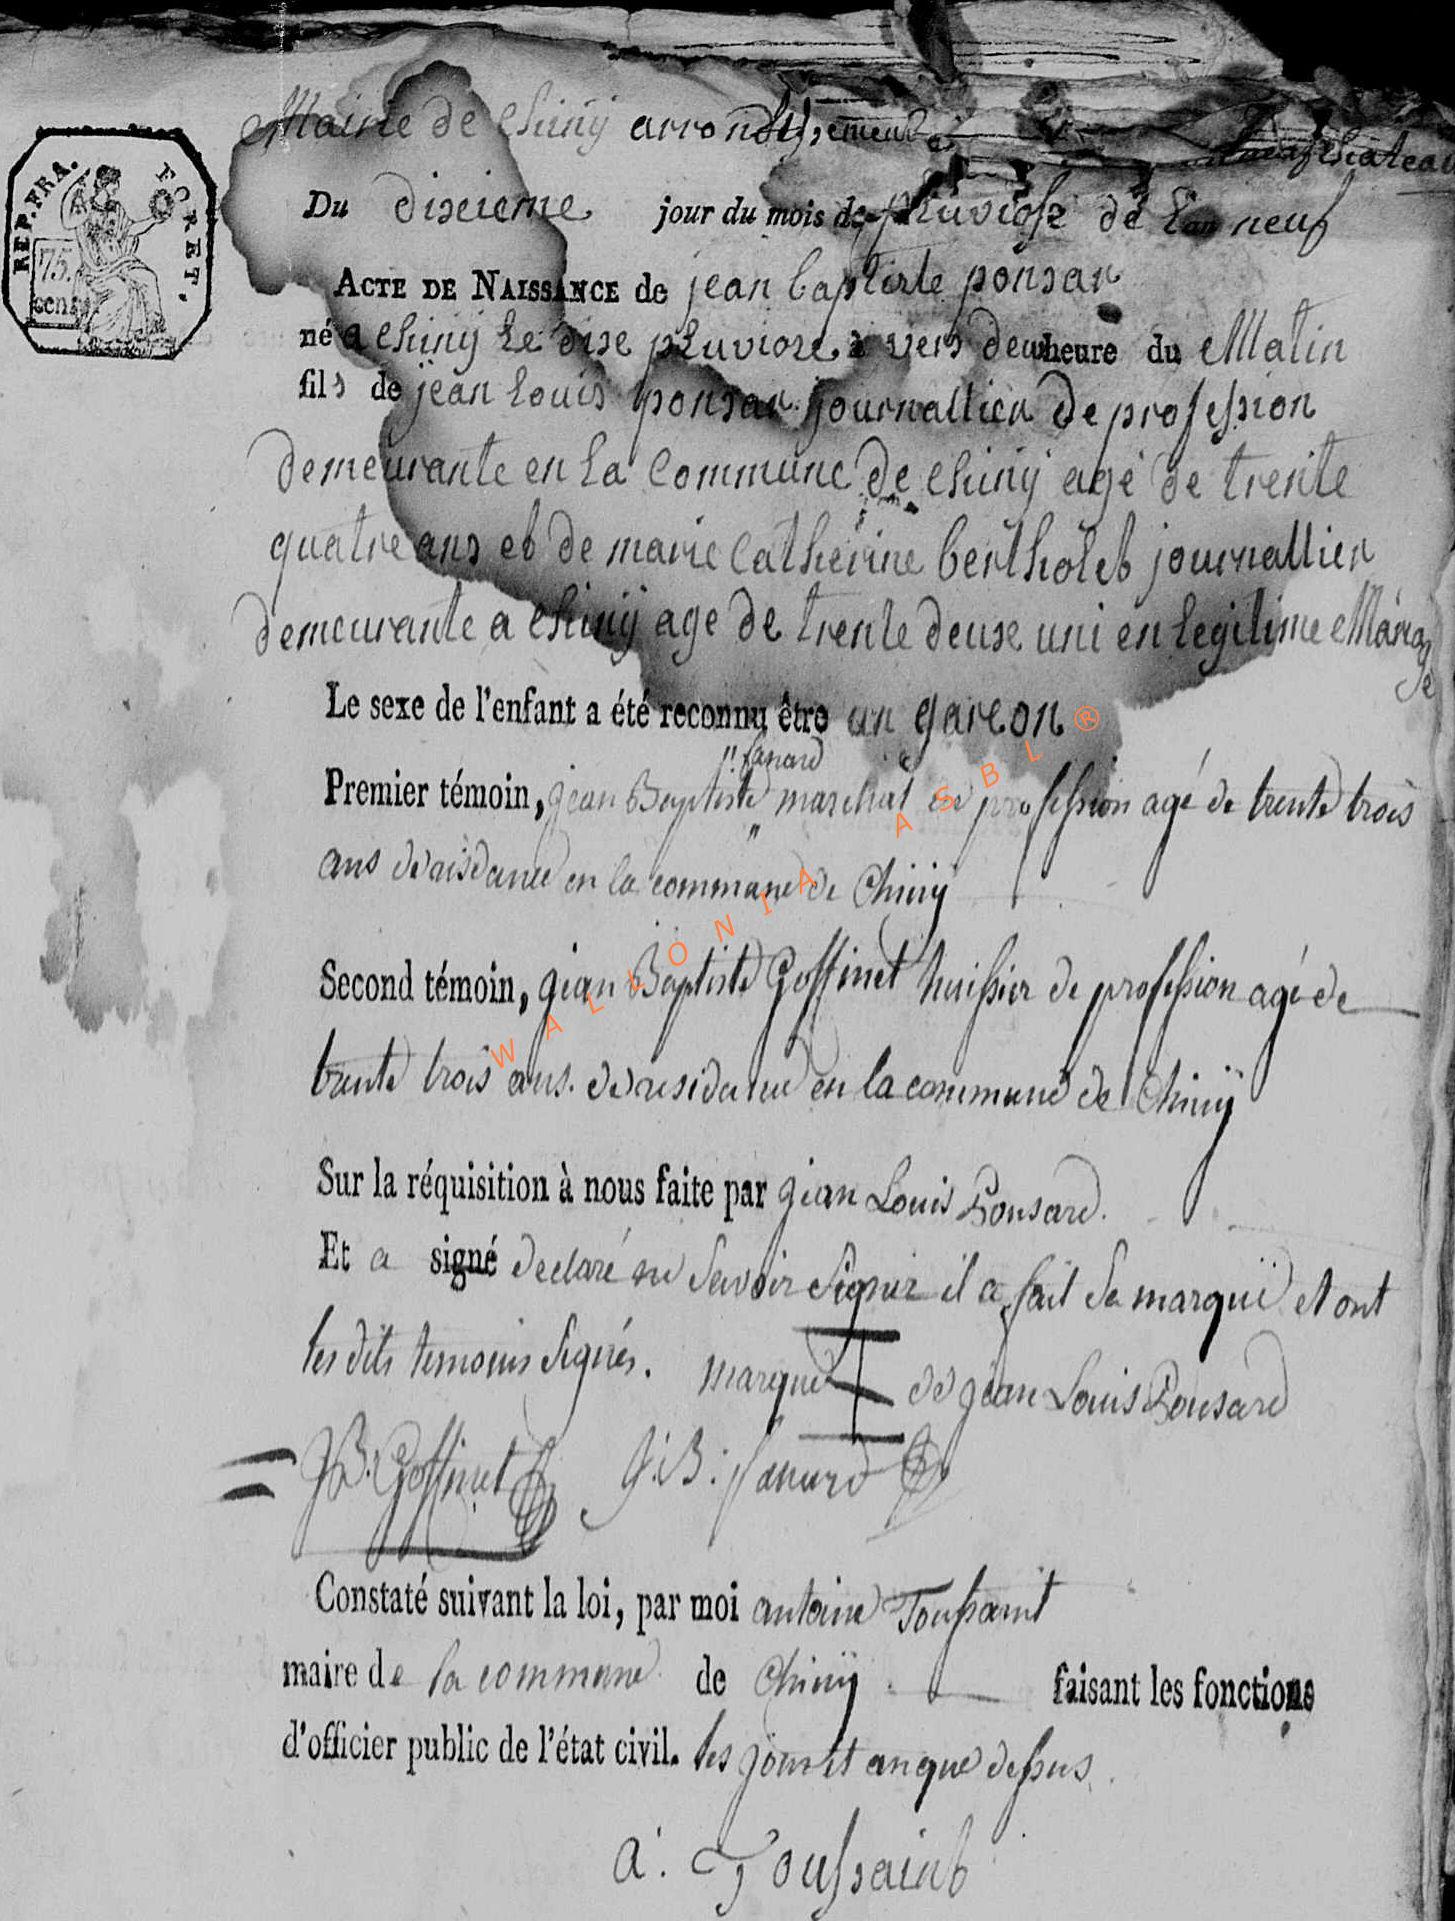 Mairie de Chiny arrondissement de neufchateau
REP. FRA.
ECRET.
75.
cent
Du dixieme jour du mois de pluviose de L'an neuf
ACTE DE NAISSANCE de jean baptiste ponsar
né a Chiny Le dixe pluviose à vers deux heure du Matin
fils de jean Louis ponsar journallier de profession
demeurante en La Commune de Chiny agé de trente
quatre ans et de marie Catherine bertholet journallier
demeurante a Chiny age de trente deuxe uni en Legitime Mariage
Le sexe de l'enfant a été reconnu être un garcon
" fanard
Premier témoin, jean Baptiste " marchal de profession agé de trente trois
ans de residance en la commune de Chiny
Second témoin, jean Baptiste Goffinet huissier de profession agé de
trente trois ans. de residance en la commune de Chiny
Sur la réquisition à nous faite par jean Louis Ponsard.
Et a signé declaré ne Savoir Signer il a fait Sa marque et ont
les dits temoins Signés. marque de jean Louis Ponsard
JB. Goffinet J: B: fanard
Constaté suivant la loi, par moi antoine Toussaint
maire de la commune de Chiny faisant les fonctions
d'officier public de l'état civil. les jour et an que dessus.
a. Toussaint
WALLONIA ASBL ®